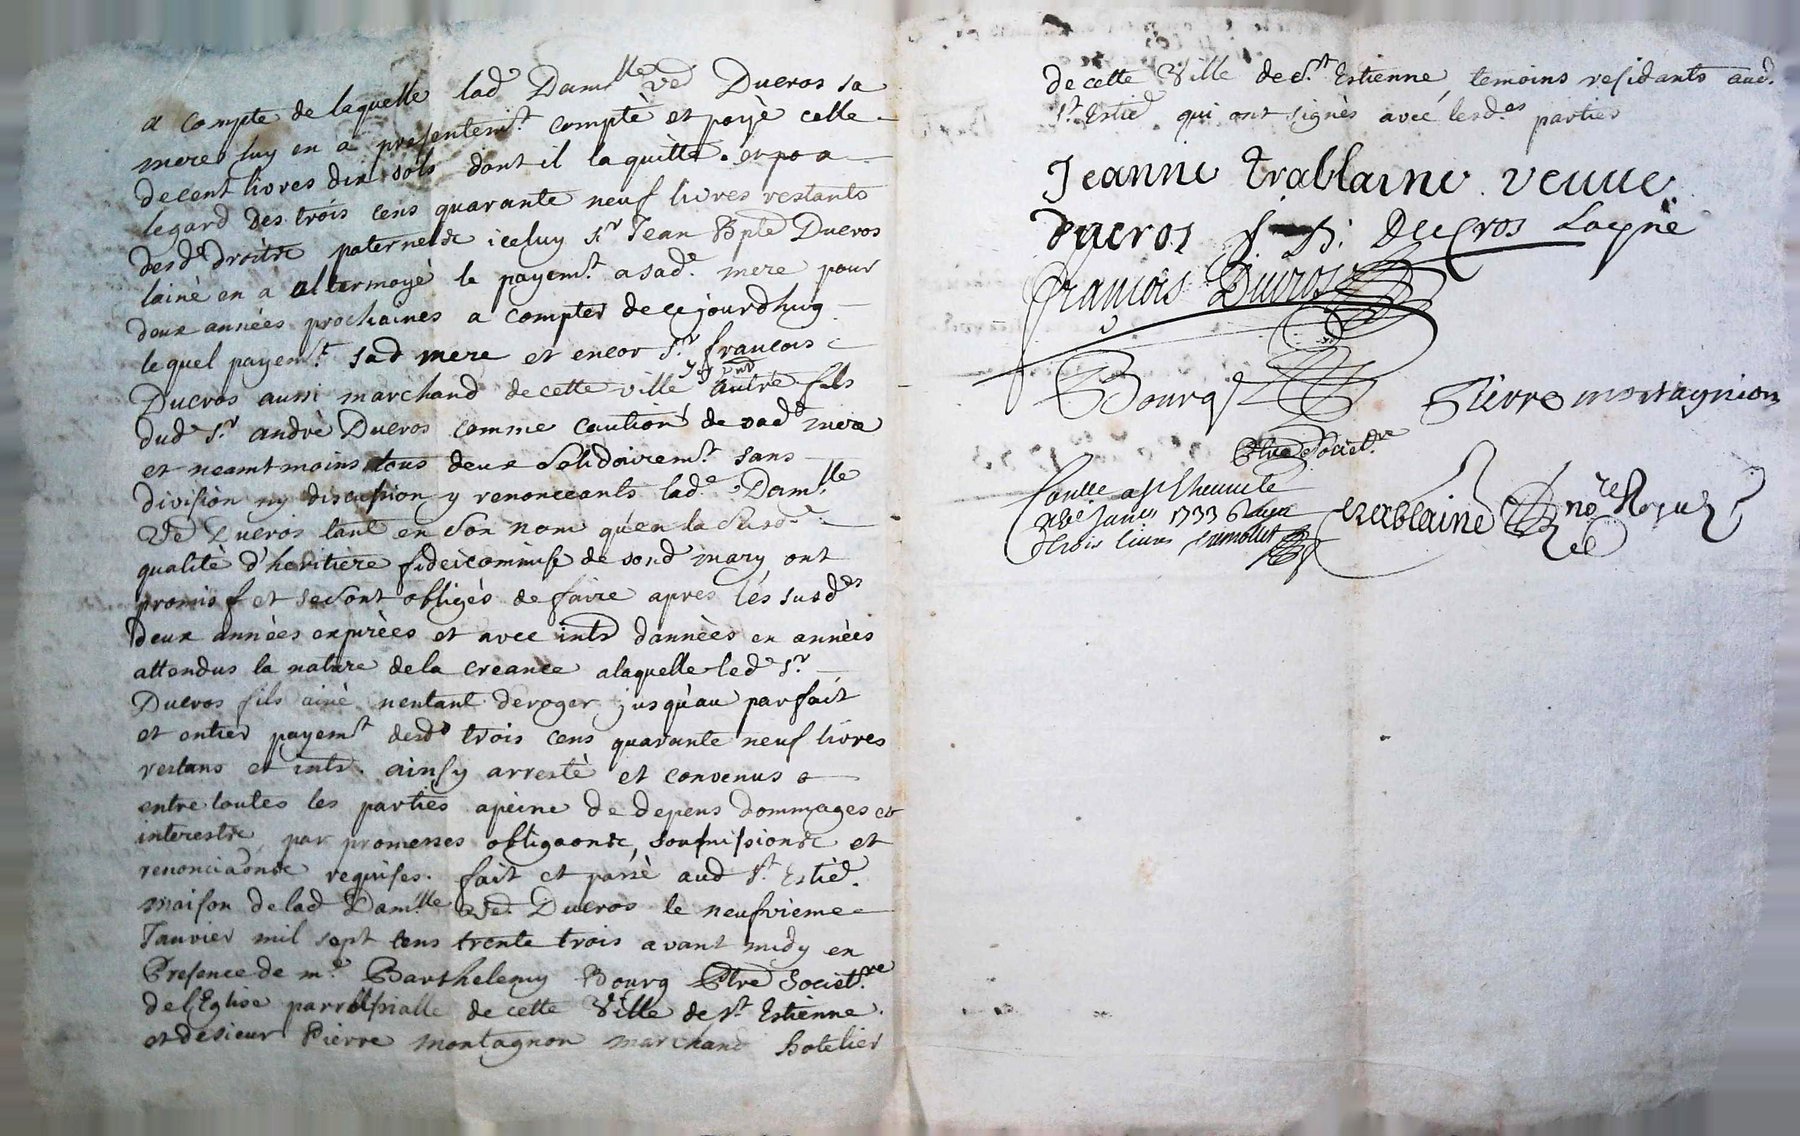 a compte de laquelle lad.e Dam.lle v.e Ducros sa
mere luy en a presentem.t compté et payé celle
de cent livres dix sols dont il la quitte. et po a
legard des trois cens quarante neuf livres restants
desd. droits paternels iceluy s.r Jean Bpte Ducros
lainé en a attermoyé le payem.t a sad.e mere pour
deux années prochaines a compter de cejourdhuy
lequel payem.t sad mere et encor s.r françois
Ducros aussi marchand de cette ville autre fils
dud. s.r andré Ducros comme caution de sad mere
et neamtmoins tous deux solidairem.t sans
division ny discussion y renonceants lad.e Dam.lle
v.e Ducros tant en son nom quen la susd.e
qualité d'heritiere fideicommise de sond mary, ont
promis et se sont obligés de faire apres les susd.es
deux années expirées et avec intr dannées en années
attendus la nature de la creance a laquelle led. s.r
Ducros fils ainé nentant deroger jusqu'au parfait
et entier payem.t desd. trois cens quarante neuf livres
restans et intr. ainsy arresté et convenus
entre toutes les parties a peine de depens dommages et
interests, par promesses obligaons, soubmissions et
renonciaons requises. fait et passé aud S.t Estie.
maison de lad Dam.lle ve. Ducros le neufvieme
Janvier mil sept cens trente trois avant midy en
Presence de m.e Barthelemy Bourg Ptre Societ.re
de l'Eglise parroissialle de cette Ville de S.t Estienne.
et de sieur Pierre montagnon marchand hotelier
de cette Ville de S.t Estienne, temoins residants aud.
S.t Estie qui ont signés avec lesd.es parties
Jeanne trablaine veuue
ducros J B: Ducros Layné
françois Ducros
Bourg Pierre montagnion
Ptre Societ.re
Conlle a St Etienne le
Janvier 1733
trois livres
trablaine no.re Royal